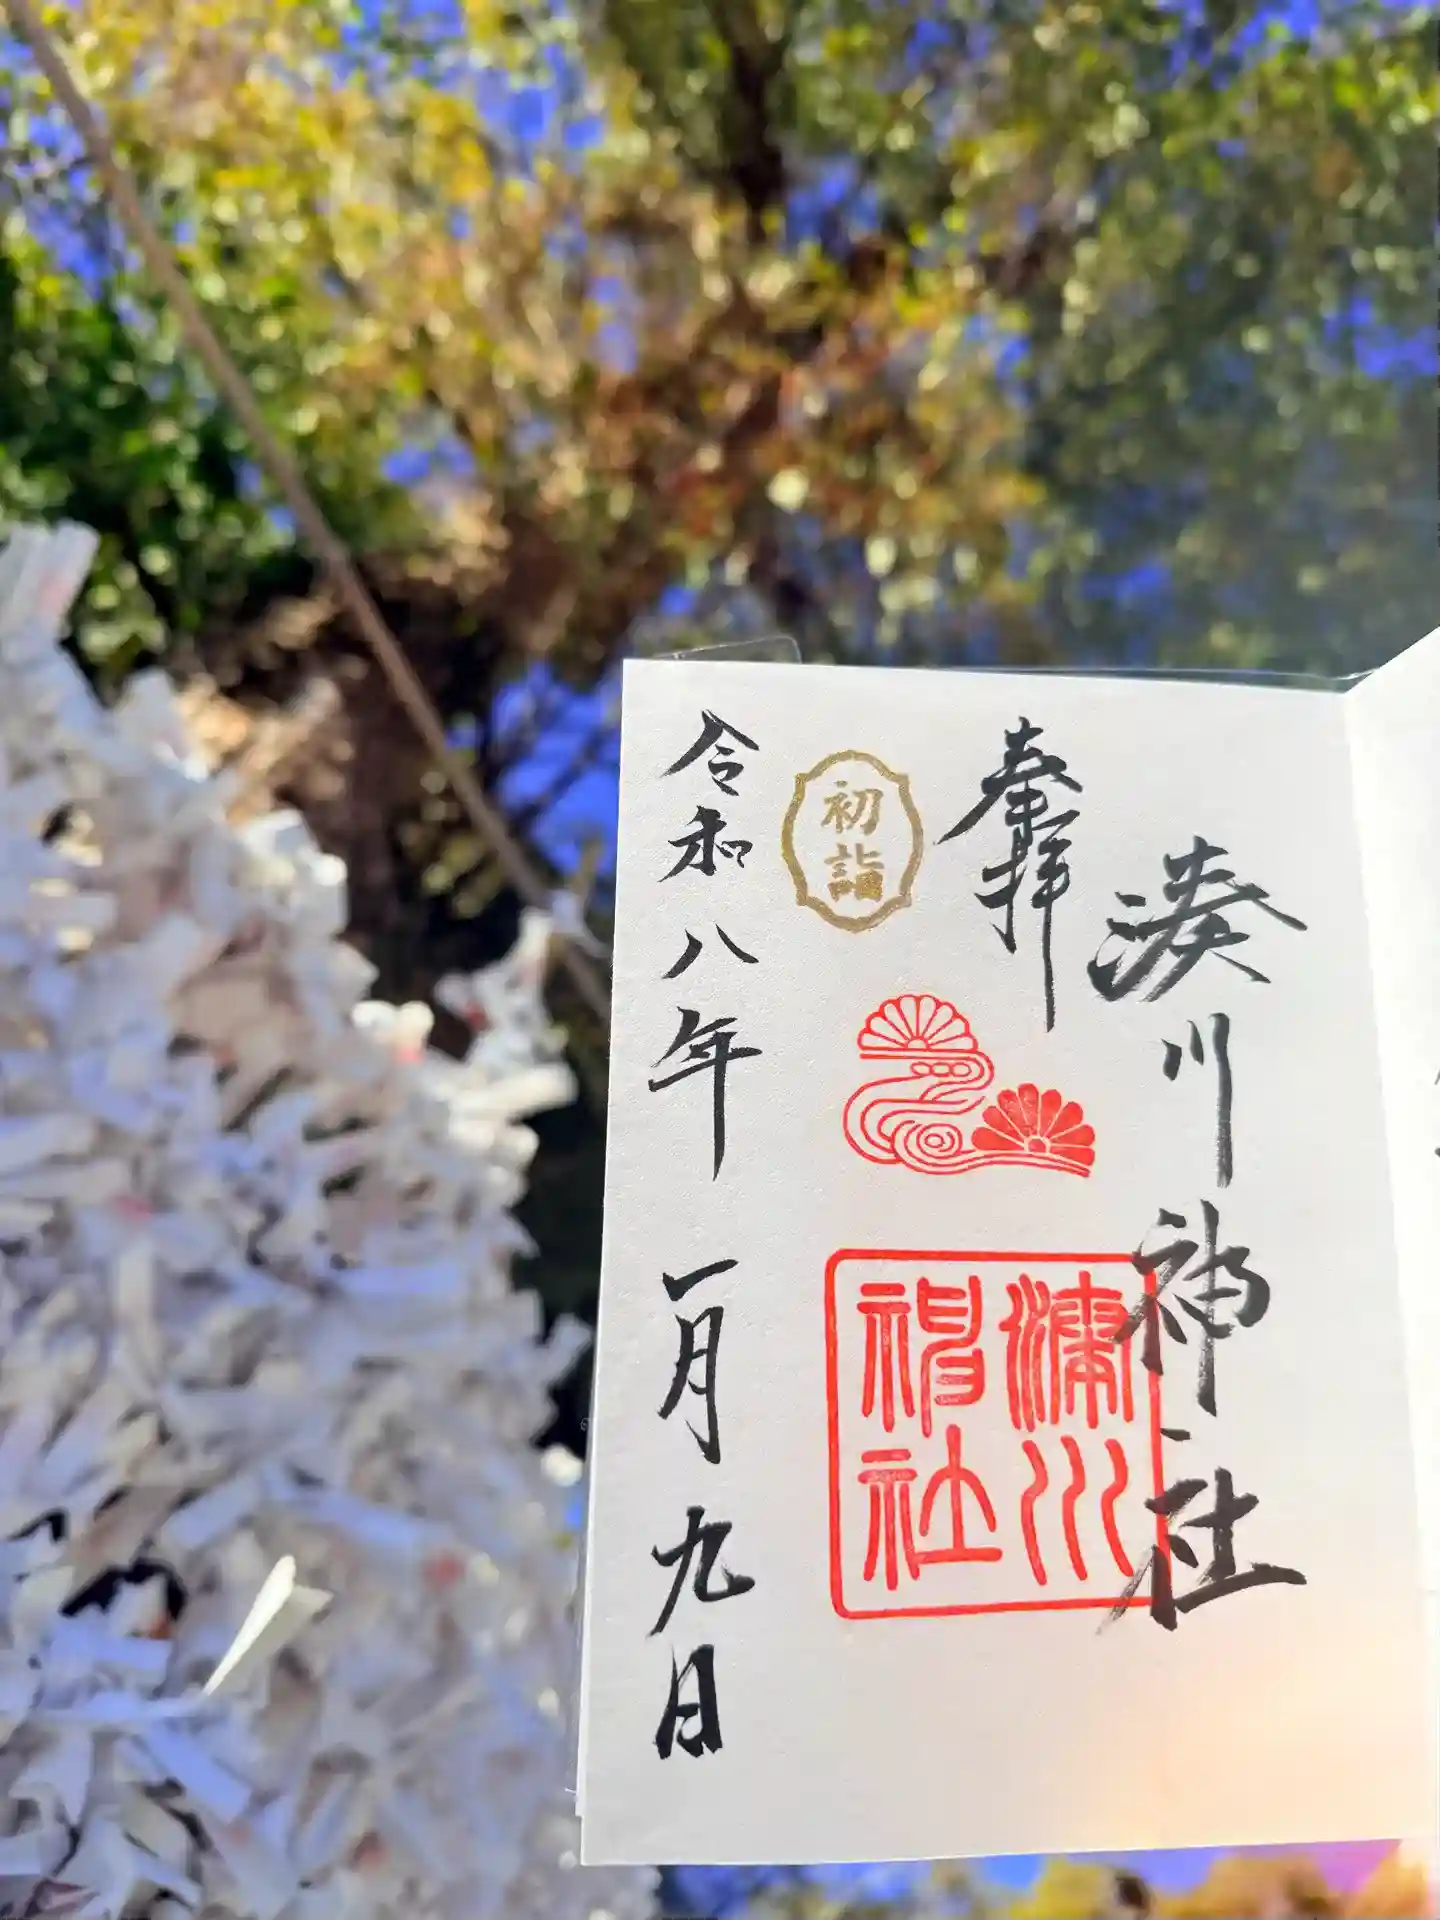 湊川神社
奉拝
湊川
神社
初詣
令和八年 一月九日